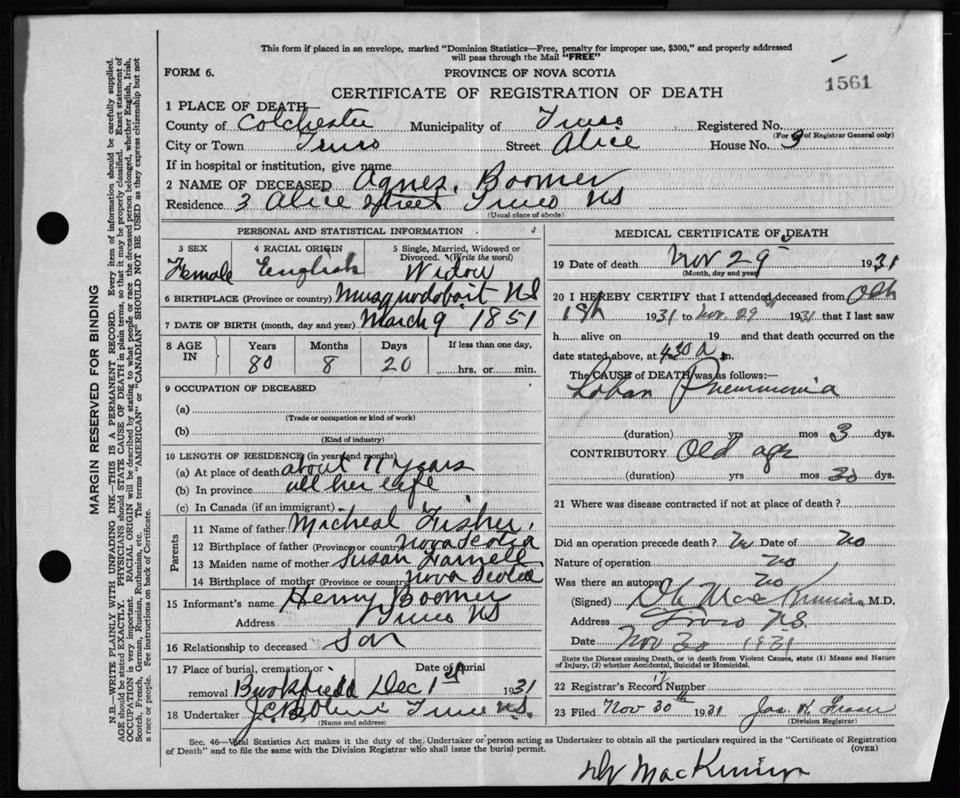 This form if placed in an envelope, marked "Dominion Statistics—Free, penalty for improper use, $300," and properly addressed
will pass through the Mail "FREE"
FORM 6.
PROVINCE OF NOVA SCOTIA
1561
CERTIFICATE OF REGISTRATION OF DEATH
MARGIN RESERVED FOR BINDING
N.B.—WRITE PLAINLY WITH UNFADING INK—THIS IS A PERMANENT RECORD. Every item of information should be carefully supplied.
AGE should be stated EXACTLY. PHYSICIANS should STATE CAUSE OF DEATH in plain terms, so that it may be properly classified. Exact statement of
OCCUPATION is very important. RACIAL ORIGIN will be described by stating to what people or race the deceased person belonged, whether English, Irish,
Scotch, French, German, Russian, Ruthenian, etc. The terms "AMERICAN" or "CANADIAN" SHOULD NOT BE USED as they express citizenship but not
a race or people. See instructions on back of Certificate.
1 PLACE OF DEATH—
County of Colchester Municipality of Truro Registered No.
(For use of Registrar General only)
City or Town Truro Street Alice House No. 3
If in hospital or institution, give name
2 NAME OF DECEASED Agnes. Boomer
Residence 3 Alice Street Truro NS
(Usual place of abode)
PERSONAL AND STATISTICAL INFORMATION
3 SEX 4 RACIAL ORIGIN 5 Single, Married, Widowed or
Divorced. (Write the word)
Female English Widow
6 BIRTHPLACE (Province or country) Musquodoboit NS
7 DATE OF BIRTH (month, day and year) March 9 1851
8 AGE IN Years Months Days If less than one day,
80 8 20 hrs. or min.
9 OCCUPATION OF DECEASED
(a)
(Trade or occupation or kind of work)
(b)
(Kind of industry)
10 LENGTH OF RESIDENCE (in years and months)
(a) At place of death about 11 years
(b) In province all her life
(c) In Canada (if an immigrant)
Parents
11 Name of father Micheal Fisher,
12 Birthplace of father (Province or country) Nova Scotia
13 Maiden name of mother Susan
14 Birthplace of mother (Province or country) Nova Scotia
15 Informant's name Henry Boomer
Address Truro NS
16 Relationship to deceased son
17 Place of burial, cremation or Date of burial
removal Dec 1st 1931
18 Undertaker Truro N.S.
(Name and address)
MEDICAL CERTIFICATE OF DEATH
19 Date of death Nov 29 1931
(Month, day and year)
20 I HEREBY CERTIFY that I attended deceased from
1931 to Nov. 29th 1931 that I last saw
h alive on 19 and that death occurred on the
date stated above, at 4.30 A m.
The CAUSE of DEATH was as follows:—
Lobar Pneumonia
(duration) yrs mos 3 dys.
CONTRIBUTORY Old age
(duration) yrs mos 30 dys.
21 Where was disease contracted if not at place of death?
Did an operation precede death? No Date of No
Nature of operation No
Was there an autopsy No
(Signed) MacKinnon M.D.
Address Truro N.S.
Date Nov 30 1931
State the Disease causing Death, or in death from Violent Causes, state (1) Means and Nature
of Injury, (2) whether Accidental, Suicidal or Homicidal.
22 Registrar's Record Number
23 Filed Nov 30th 1931 Jas. H. Fraser
(Division Registrar)
Sec. 46—Vital Statistics Act makes it the duty of the Undertaker or person acting as Undertaker to obtain all the particulars required in the "Certificate of Registration
of Death" and to file the same with the Division Registrar who shall issue the burial permit.
(OVER)
Dr MacKinnon